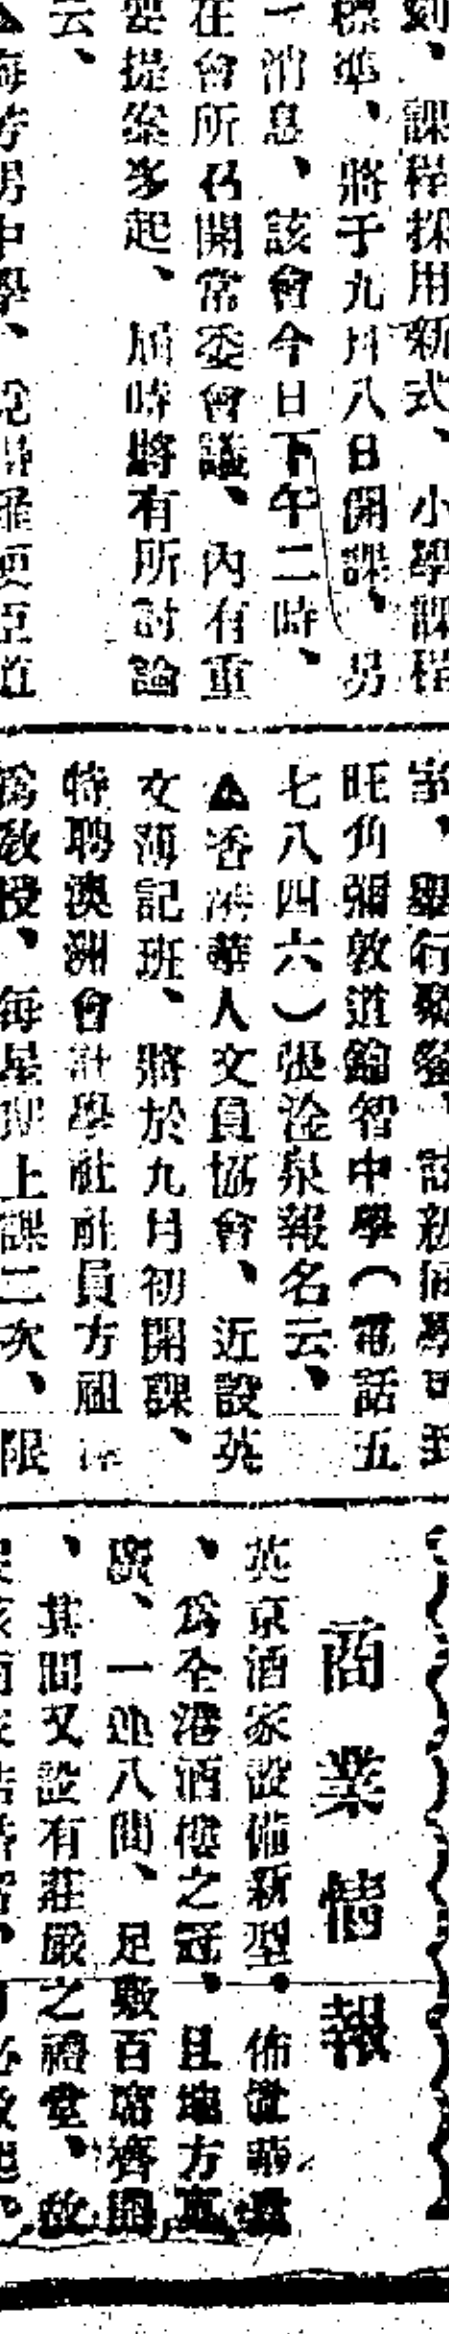 則、課程採用新式、小學課程
標準、將于九月八日開課、另
一消息、該會今日下午二時、
在會所召開常委會議、內有重
要提案多起、屆時將有所討論
云、
男中學、
家、舉行聚餐、
旺角彌敦道鑰智中學（電話五
七八四六）張淦泉報名云、
▲香港華人文員協會、近設英
文簿記班、將於九月初開課、
特聘澳洲會計學社社員方祖
為教授、每星期上課二次、限
商業情報
英京酒家設備新型、佈置華
、為全港酒樓之冠、且地方寬
廣、一連八間、足數百席齊開
、其間又設有莊嚴之禮堂、故